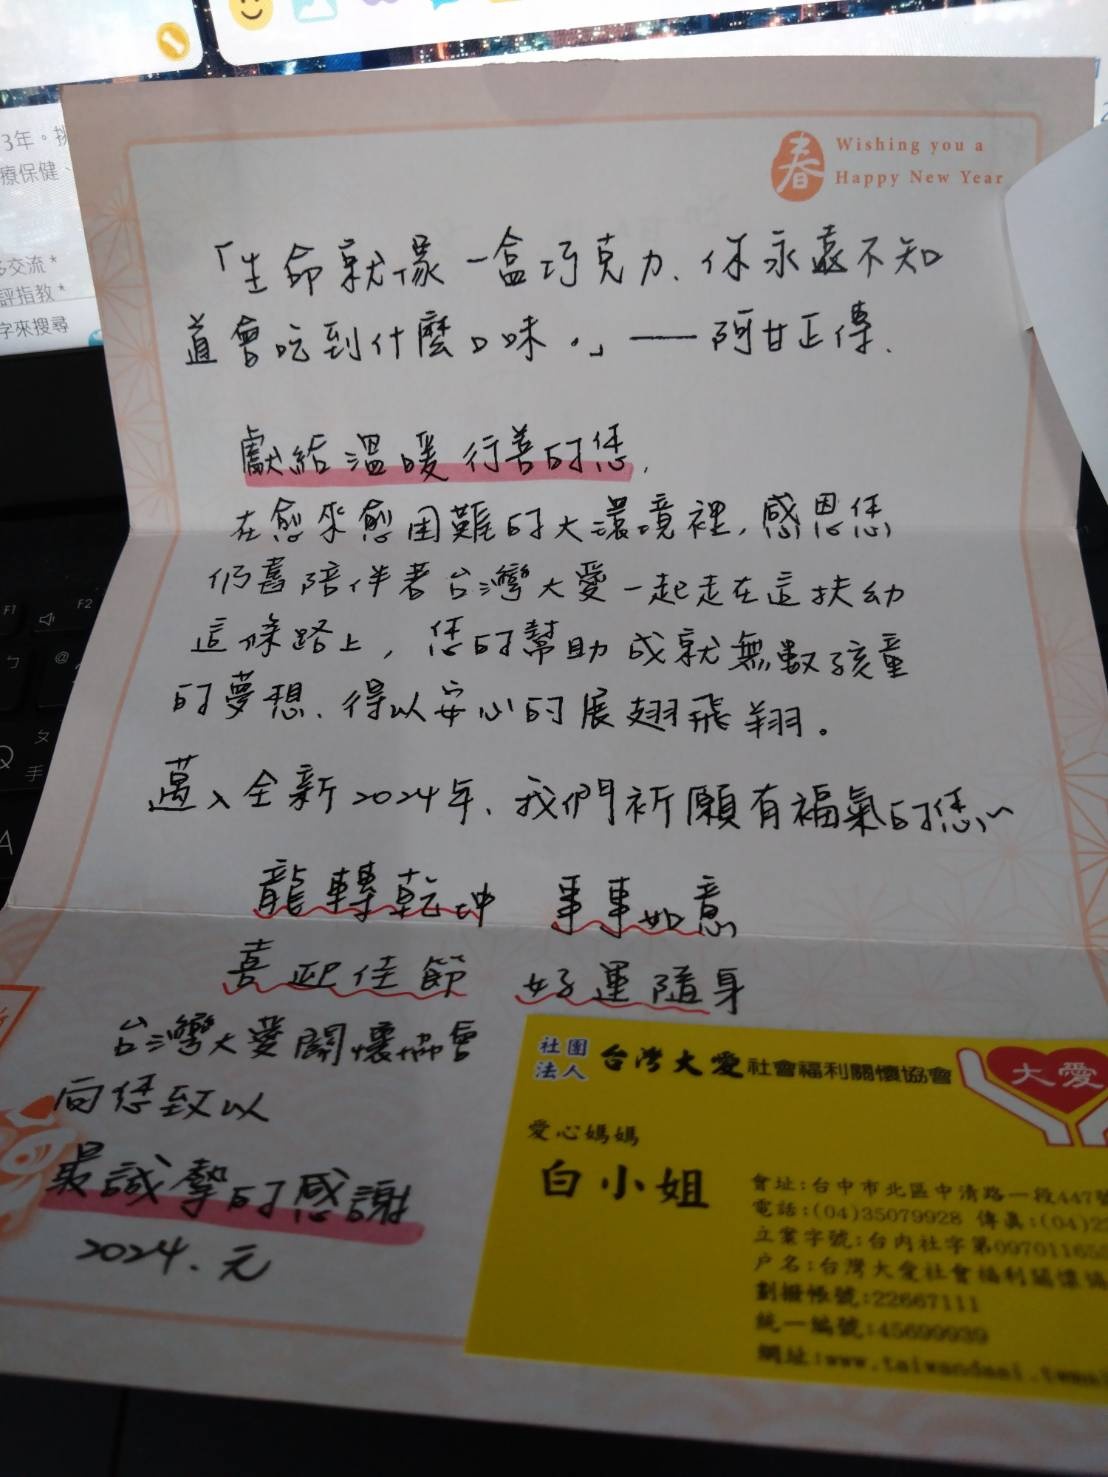 3年。
療保健、
交流*
評指教*
字來搜尋
春
Wishing you a
Happy New Year
「生命就像一盒巧克力、你永遠不知
道會吃到什麼口味。」——阿甘正傳.
獻給溫暖行善的您,
在愈來愈困難的大環境裡,感恩您
仍舊陪伴著台灣大愛一起走在這扶幼
這條路上,您的幫助成就無數孩童
的夢想、得以安心的展翅飛翔。
邁入全新2024年、我們祈願有福氣的您~
龍轉乾坤 事事如意
喜迎佳節 好運隨身
台灣大愛關懷協會
向您致以
最誠摯的感謝
2024.元
社團法人 台灣大愛社會福利關懷協會
大愛
愛心媽媽
白小姐
會址:台中市北區中清路一段447號
電話:(04)35079928 傳真:(04)2
立案字號:台內社字第097011655
戶名:台灣大愛社會福利關懷協
劃撥帳號:22667111
統一編號:45699939
網址:www.
F1
F2
ㄅ
@
Q
ㄆ
手
A